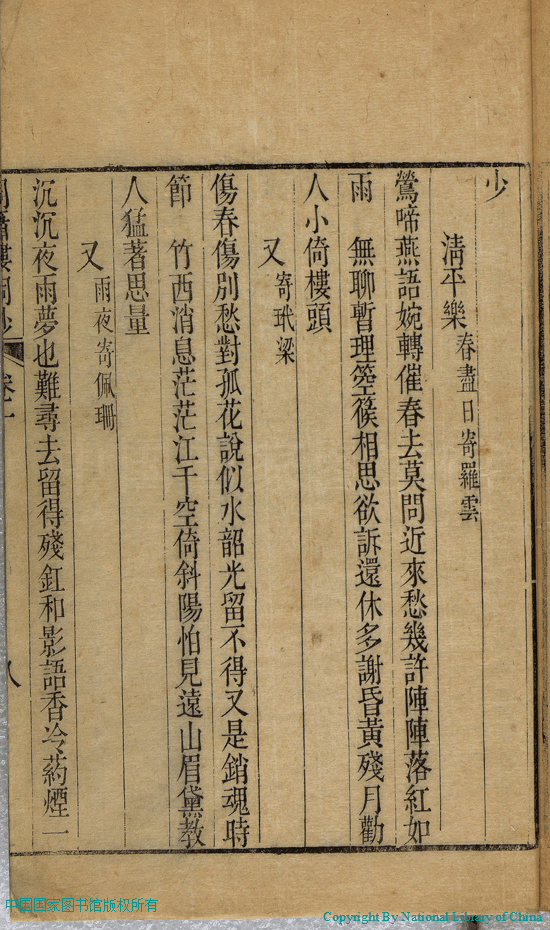 少
清平樂 春盡日寄羅雲
鶯啼燕語婉轉催春去莫問近來愁幾許陣陣落紅如
雨 無聊暫理箜篌相思欲訴還休多謝昏黃殘月勸
人小倚樓頭
又 寄玳梁
傷春傷別愁對孤花說似水韶光留不得又是銷魂時
節 竹西消息茫茫江干空倚斜陽怕見遠山眉黛教
人猛著思量
又 雨夜寄佩珊
沉沉夜雨夢也難尋去留得殘釭和影語香冷葯煙一
卷一
八
中国国家图书馆版权所有
Copyright By National Library of China